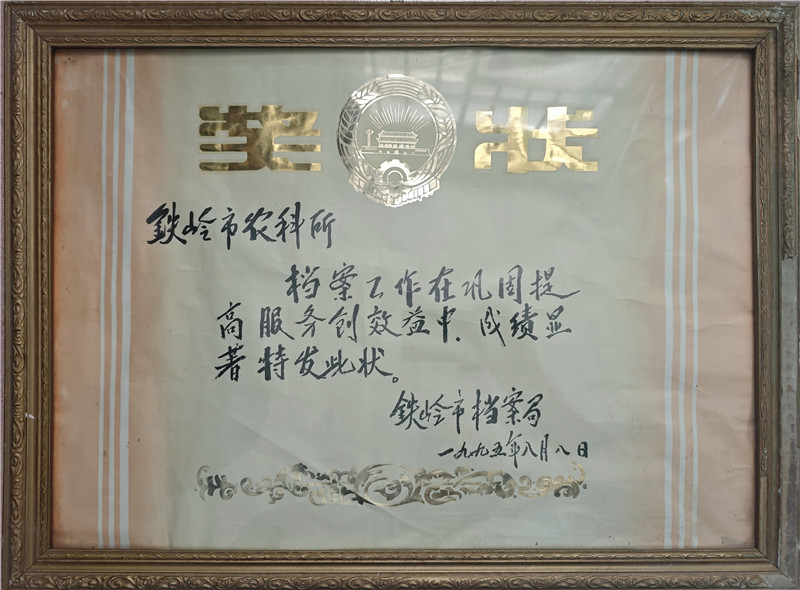 奖状
铁岭市农科所
档案工作在巩固提
高服务创效益中，成绩显
著特发此状。
铁岭市档案局
一九九五年八月八日